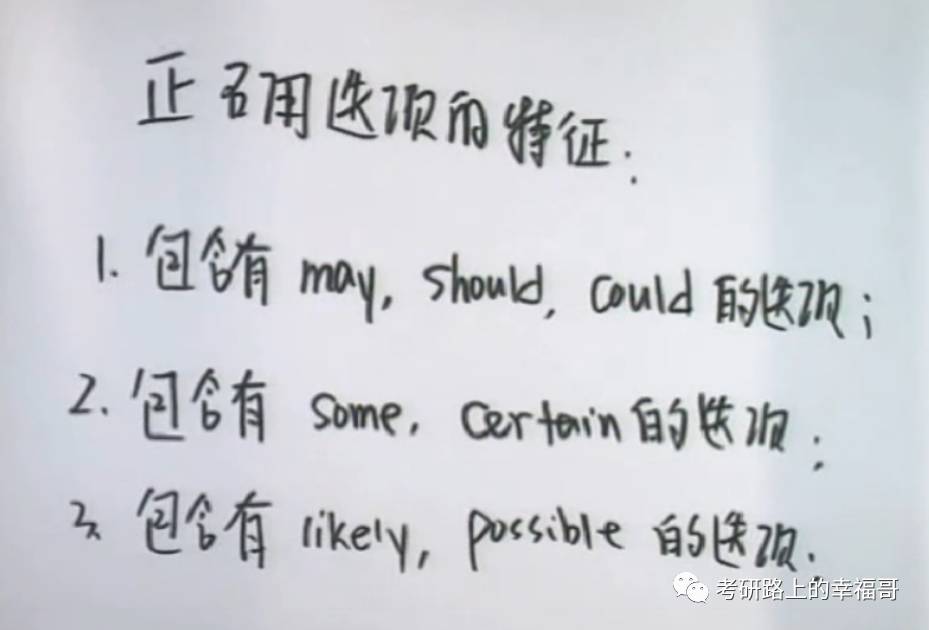 正确用选项的特征:
1. 包含有 may, should, could 的选项;
2. 包含有 some, certain 的选项;
3. 包含有 likely, possible 的选项.
考研路上的幸福哥